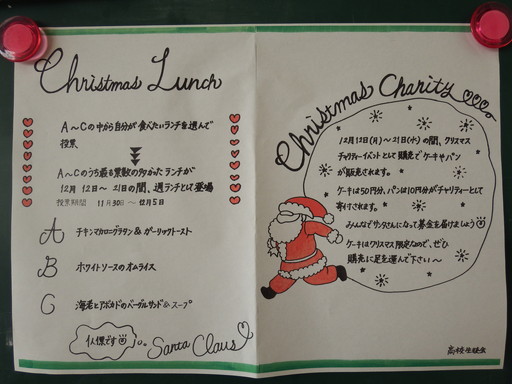 Christmas Lunch
A〜Cの中から自分が食べたいランチを選んで
投票
A〜Cのうち最も票数の多かったランチが
12月 12日〜 21日の間、週ランチとして登場
投票期間 11月30日 〜 12月5日
A チキンマカログラタン&ガーリックトースト
B ホワイトソースのオムライス
C 海老とアボカドのベーグルサンド&スープ
です
Santa Claus
Christmas Charity
12月12日(月)〜21日(水)の間、クリスマス
チャリティーイベントとして購売でケーキやパン
が販売されます。
ケーキは50円分、パンは10円分がチャリティーとして
寄付されます。
みんなでサンタさんになって募金を届けましょう
ケーキはクリスマス限定なので、ぜひ
購売に足を運んで下さい〜
高校生徒会